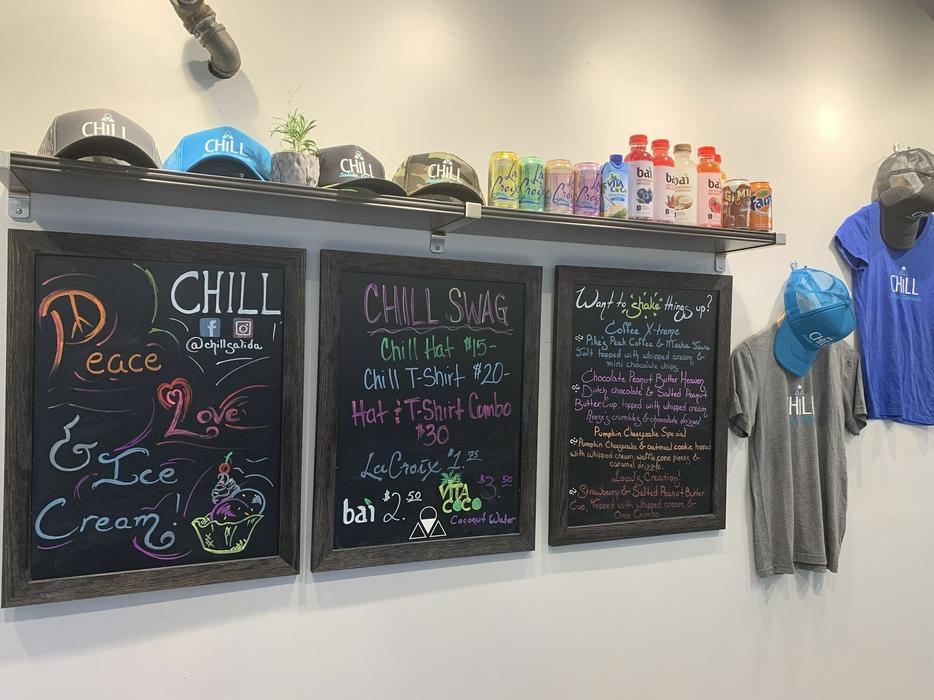 CHILL
CHILL
CHILL
CHILL
La Croix
La Croix
La Croix
La Croix
VITA COCO
bai
bai
bai
bai
Fanta
CHILL
CHILL
Peace
Love
& Ice
Cream!
CHILL
@chillsalida
CHILL SWAG
Chill Hat $15-
Chill T-Shirt $20-
Hat & T-Shirt Combo
$30
LaCroix $1.75
bai $2.50
VITA
COCO
$3.50
Coconut Water
Want to shake things up?
Coffee X-treme
Pike's Peak Coffee & Mocha Java
Salt topped with whipped cream &
mini chocolate chips
Chocolate Peanut Butter Heaven
Dutch chocolate & Salted Peanut
Butter Cup, topped with whipped cream
Reese's crumbles & chocolate drizzel
Pumpkin Cheesecake Special
Pumpkin Cheesecake & oatmeal cookie topped
with whipped cream, waffle cone pieces &
caramel drizzle.
Local's Creation!
Strawberry & Salted Peanut Butter
Cup, Topped with whipped cream &
Oreo Crumbs